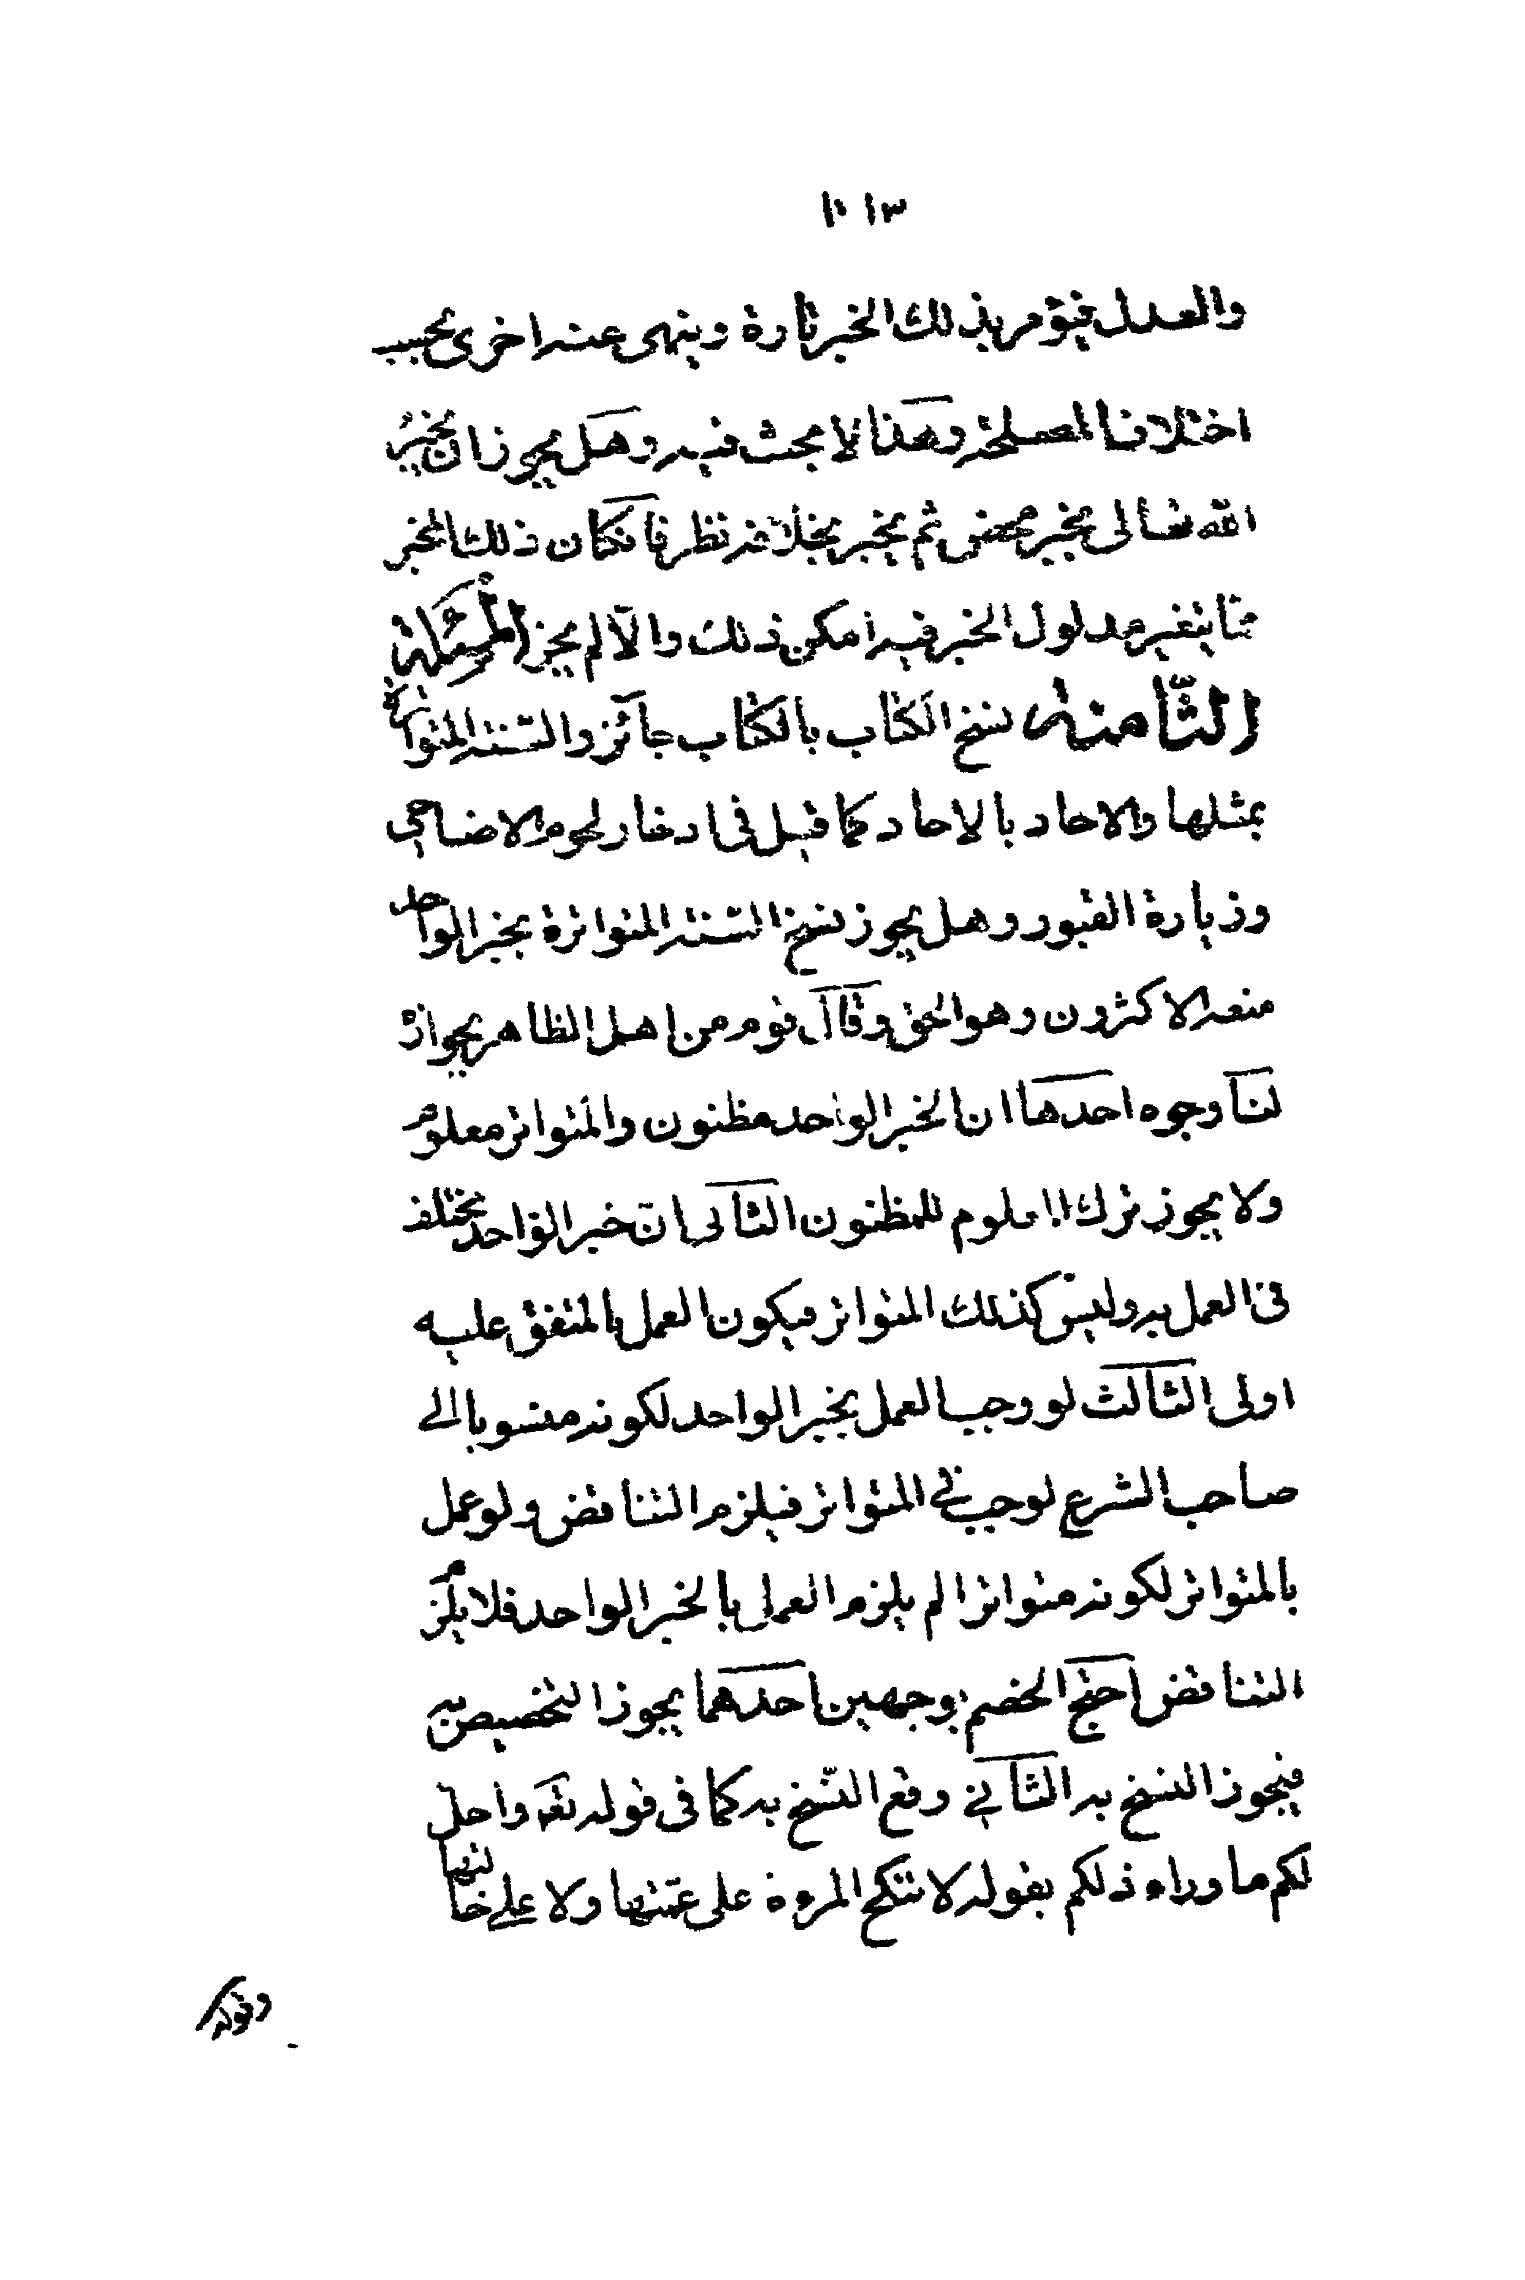 والعدل فيؤمر بذلك الخبر تارة وينهى عنه اخرى بحسب
اختلاف المصلحة وهذا لا بحث فيه وهل يجوز ان يخبر
الله تعالى بخبر محض ثم يخبر بخلافه نظر فان كان ذلك الخبر
ممّا يتغير مدلول الخبر فيه امكن ذلك والّا لم يجز المسئلة
الثّامنة نسخ الكتاب بالكتاب جائز والسّنة المتواترة
بمثلها والاحاد بالاحاد كما قيل فى ادخار لحوم الاضاحى
وزيارة القبور وهل يجوز نسخ السّنة المتواترة بخبر الواحد
منعه الاكثرون وهو الحق وقال قوم من اهل الظاهر بجوازه
لنا وجوه احدها ان الخبر الواحد مظنون والمتواتر معلوم
ولا يجوز ترك المعلوم للمظنون الثانى انّ خبر الواحد يختلف
فى العمل به وليس كذلك المتواتر فيكون العمل بالمتفق عليه
اولى الثالث لو وجب العمل بخبر الواحد لكونه منسوبا الى
صاحب الشرع لوجب فى المتواتر فيلزم التناقض ولو عمل
بالمتواتر لكونه متواترا لم يلزم العمل بالخبر الواحد فلا يلزم
التناقض احتج الخصم بوجهين احدهما يجوز التخصيص به
فيجوز النسخ به الثانى وقع النّسخ به كما فى قوله تعه واحل
لكم ما وراء ذلكم بقوله لا تنكح المرءة على عمّتها ولا على خالتها